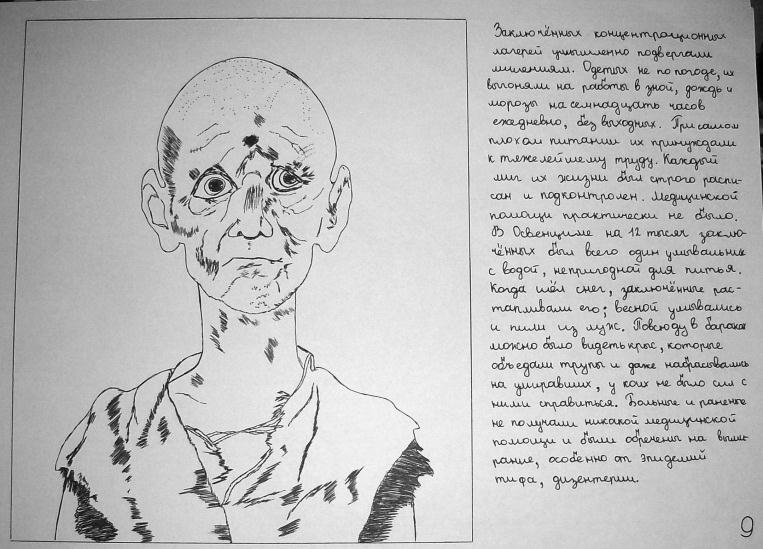 Заключённых концентрационных
лагерей умышленно подвергали
лишениям. Одетых не по погоде, их
выгоняли на работы в зной, дождь и
морозы на семнадцать часов
ежедневно, без выходных. При самом
плохом питании их принуждали
к тяжелейшему труду. Каждый
миг их жизни был строго распи-
сан и подконтролен. Медицинской
помощи практически не было.
В Освенциме на 12 тысяч заклю-
чённых был всего один умывальник
с водой, непригодной для питья.
Когда шёл снег, заключённые рас-
тапливали его; весной умывались
и пили из луж. Повсюду в бараках
можно было видеть крыс, которые
объедали трупы и даже набрасывались
на умиравших, у коих не было сил с
ними справиться. Больные и раненые
не получали никакой медицинской
помощи и были обречены на выми-
рание, особенно от эпидемий
тифа, дизентерии.
9